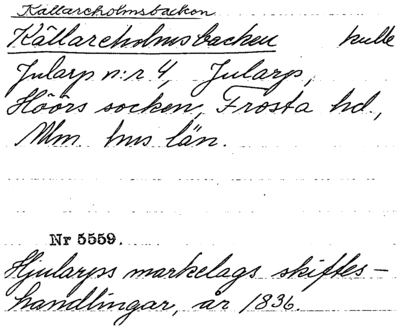 Källareholmsbacken
Källareholmsbacken kulle
Jularp n:r 4, Jularp,
Höörs socken, Frosta hd.,
Mlm. hus län.
Nr 5559.
Hjularps markelags skiftes-
handlingar, år 1836.